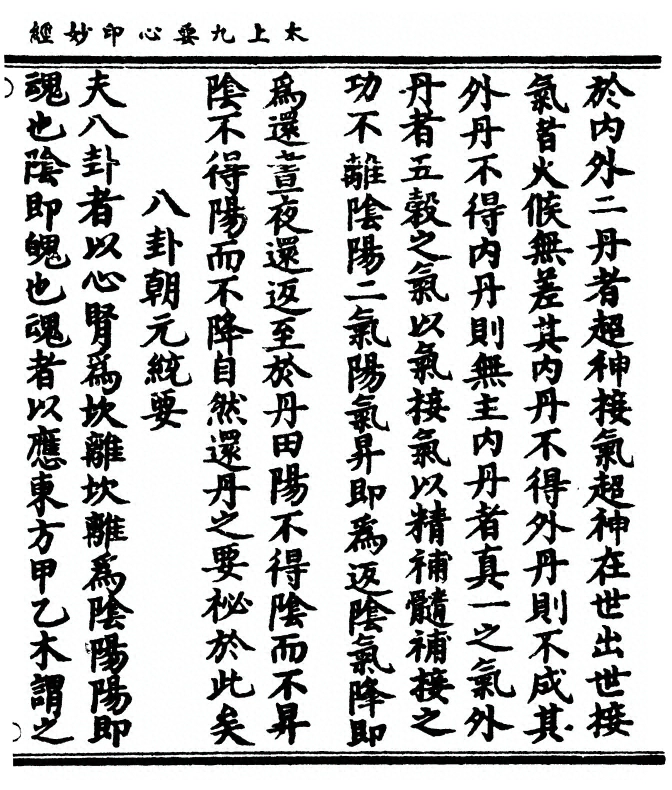 太上九要心印妙經
於內外二丹者超神接氣超神在世出世接
氣者火候無差其內丹不得外丹則不成其
外丹不得內丹則無主內丹者真一之氣外
丹者五穀之氣以氣接氣以精補髓補接之
功不離陰陽二氣陽氣昇即為返陰氣降即
為還晝夜還返至於丹田陽不得陰而不昇
陰不得陽而不降自然還丹之要祕於此矣
八卦朝元統要
夫八卦者以心腎為坎離坎離為陰陽陽即
魂也陰即魄也魂者以應東方甲乙木謂之